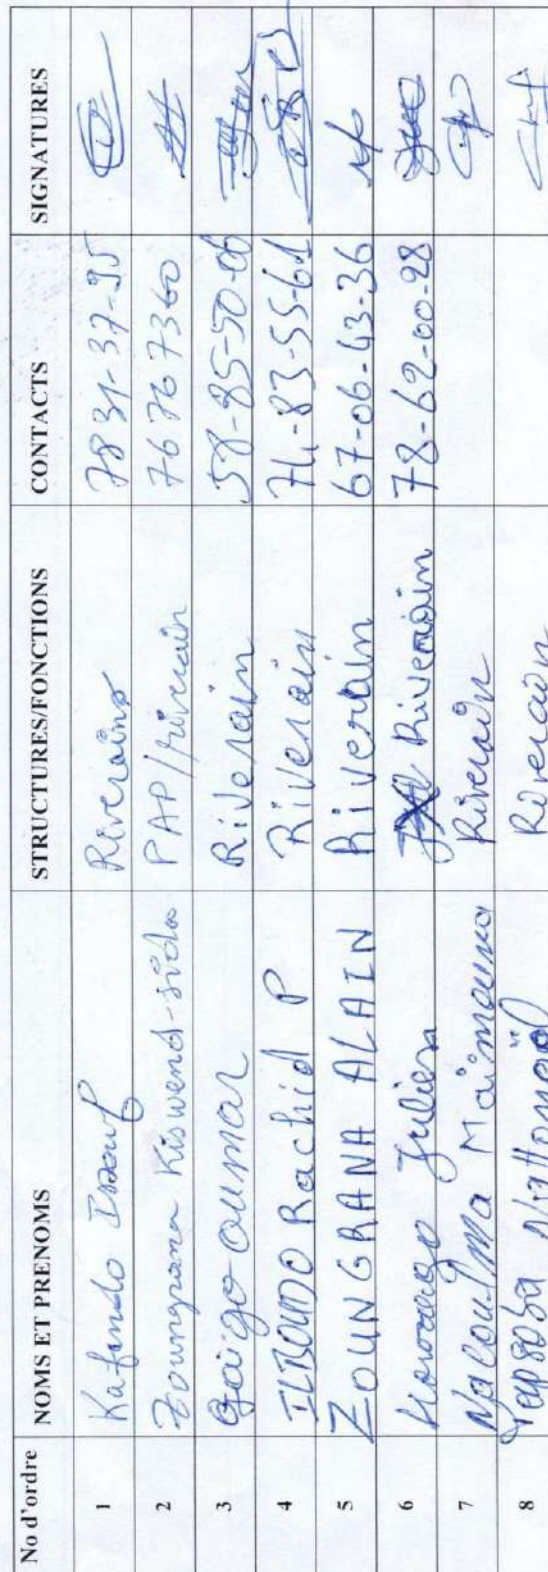 No d'ordre NOMS ET PRENOMS STRUCTURES/FONCTIONS CONTACTS SIGNATURES
1 Kafando Issouf Riverains 78 31-37-95
2 Zoungrana Kiswend-sida PAP/riverain 76767360
3 Gaigo oumar Riverain 58-85-50-06
4 ILBOUDO Rachid P Riverain 74-83-55-61
5 ZOUNGRANA ALAIN Riverain 67-06-43-36
6 Julien Riverain 78-62-00-28
7 Nacoulma Maimouna Riverain
8 Tapsoba Riverain